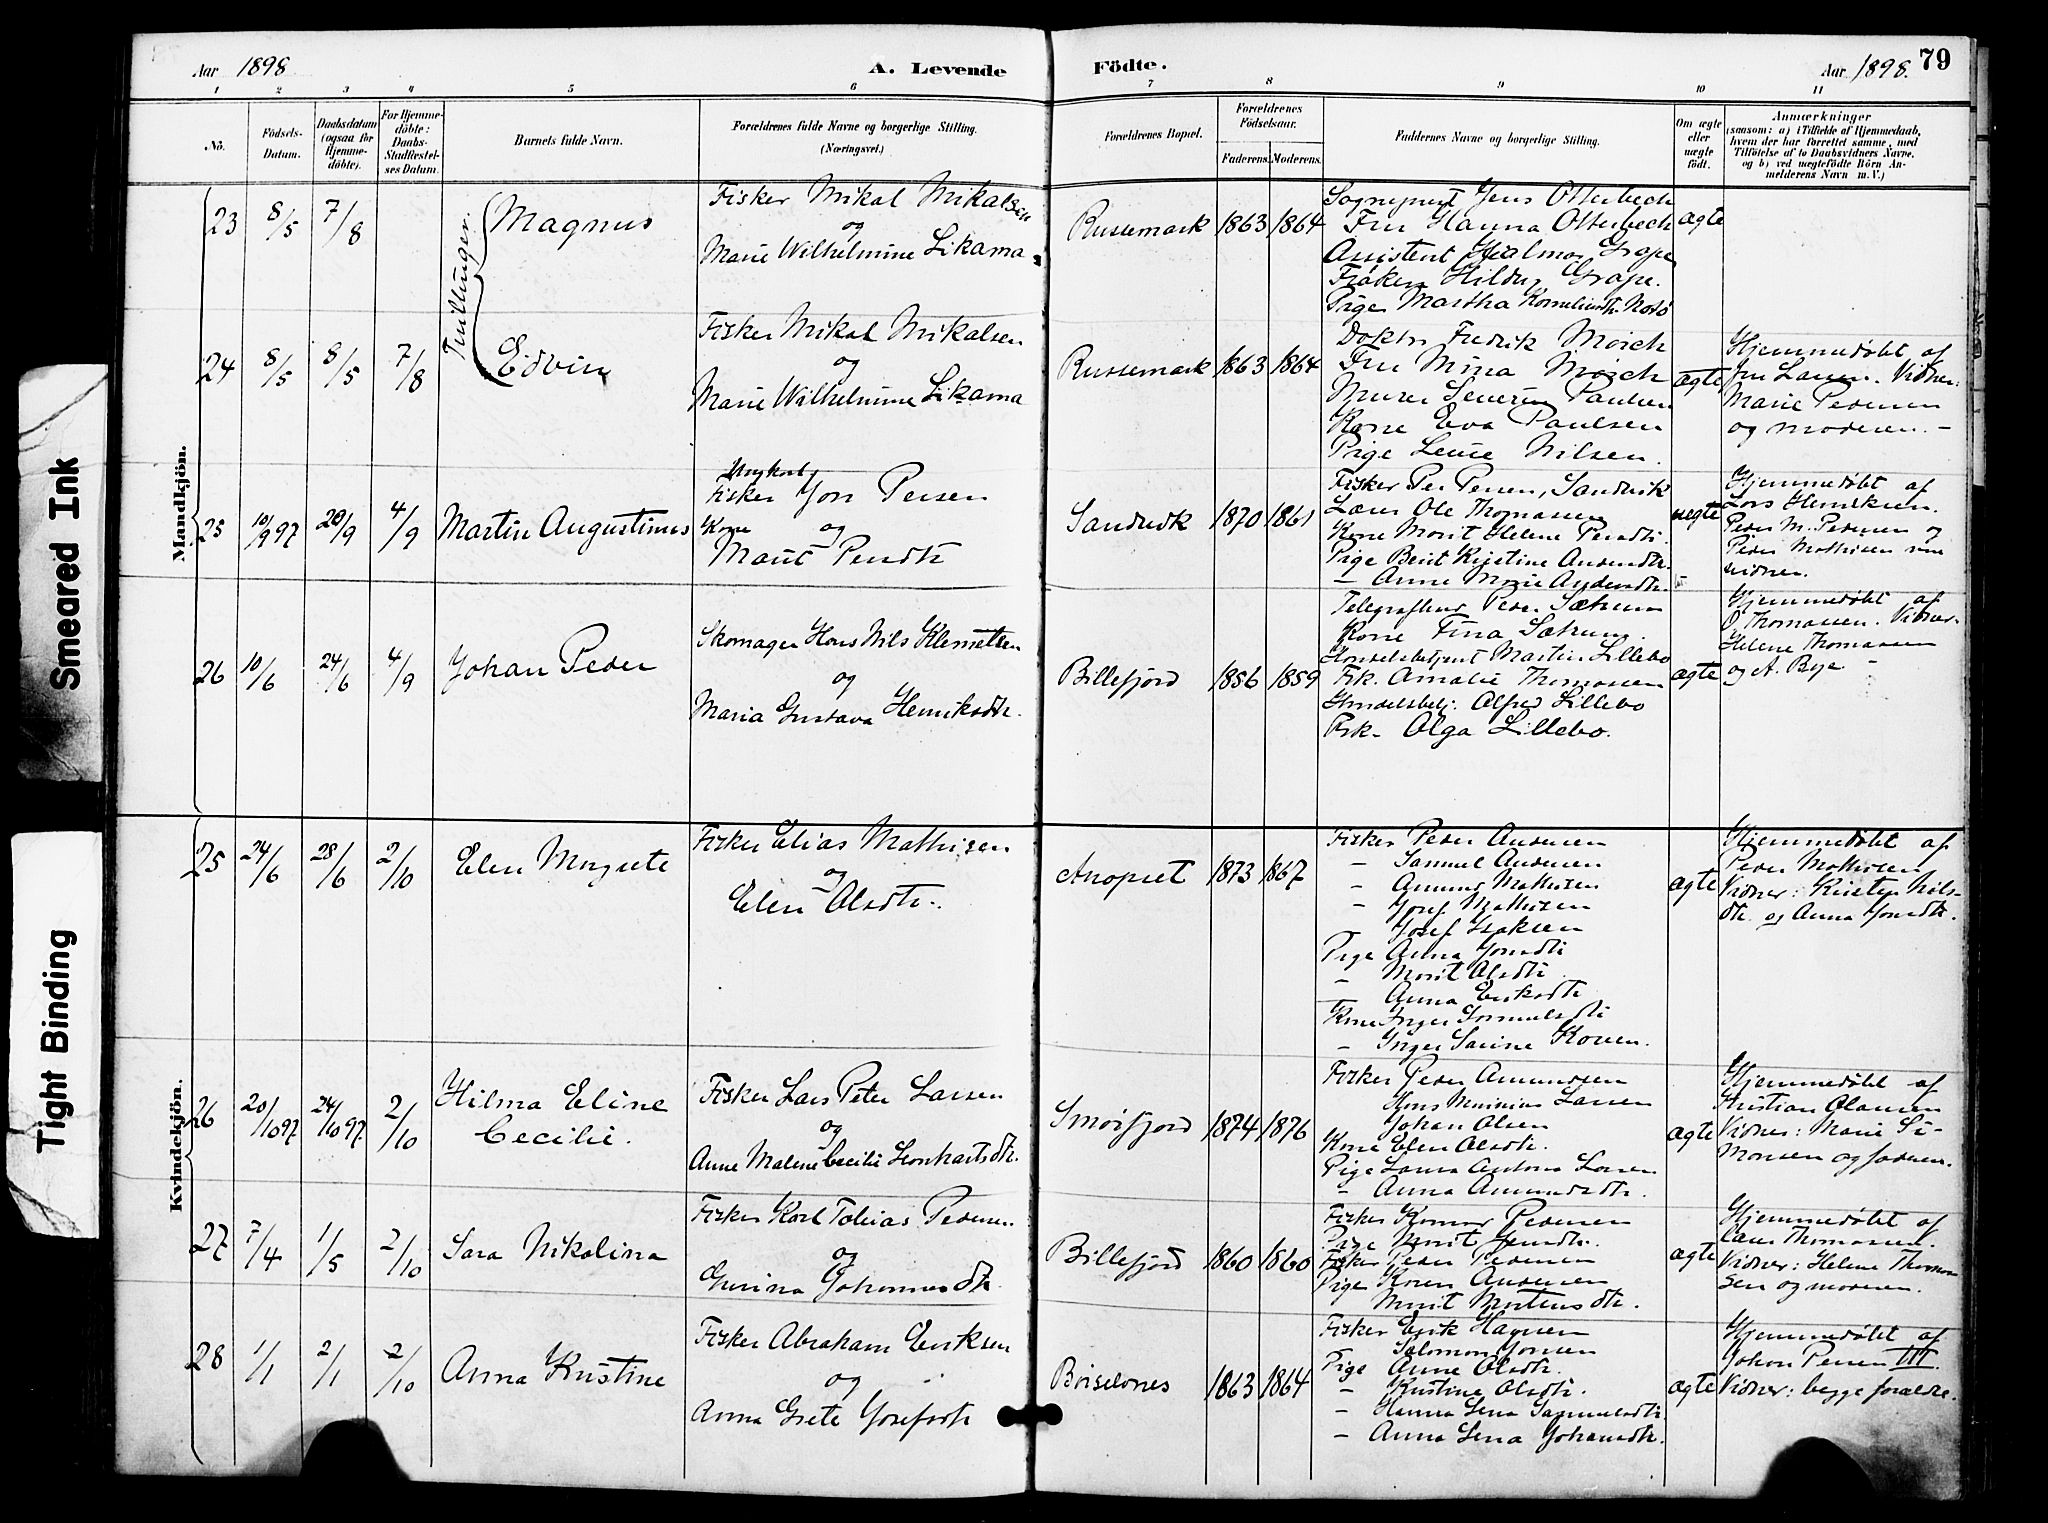 Aar 1898
A. Levende
Födte.
Aar 1898.
79
1 2 3 4 5 6 7 8 9 10 11
Nö.
Födsels-
Datum.
Daabsdatum
(ogsaa for
Hjemme-
döbte).
For Hjemme-
döbte:
Daabs-
Stadfæstel-
ses Datum.
Barnets fulde Navn.
Forældrenes fulde Navne og borgerlige Stilling.
(Næringsvei.)
Forældrenes Bopæl.
Forældrenes
Födselsaar.
Faderens. Moderens.
Faddernes Navne og borgerlige Stilling.
Om ægte
eller
uægte
födt.
Anmærkninger
(saasom: a) i Tilfælde af Hjemmedaab,
hvem der har forrettet samme, med
Tilföielse af to Daabsvidners Navne,
og b) ved uægtefödte Börn An-
melderens Navn m. V.)
Smeared Ink
Tight Binding
Mandkjön.
Tvillinger.
23
8/5
7/8
Magnus
Fisker Mikal Mikalsen
og
Marie Wilhelmine Likama
Russemark
1863
1864
Sogneprest Jens Otterbech
Fru Hanna Otterbech
Assistent Hjalmar Grape
Frøken Hildur Grape.
Pige Martha
ægte
24
8/5
8/5
7/8
Edvin
Fisker Mikal Mikalsen
og
Marie Wilhelmine Likama
Russemark
1863
1864
Doktor Fredrik Moich
Fru Mina Moich
Murer Severin Paulsen
Kone Eva Paulsen
Pige Nilsen.
ægte
Hjemmedøbt af
Fru Vidner:
Marie Pedersen
og moderen. -
25
10/9 97
20/9
4/9
Martin Augustinus
Ungkarl
Fisker Jon Persen
Kone og
Marit Persdtr
Sandvik
1870
1861
Fisker Per Persen, Sandvik
Lærer Ole Thomassen
Kone Marit Helene Persdtr.
Pige Berit Kirstine Andersdtr.
- Anne Marie Andersdtr.
uegte
Hjemmedøbt af
Lars Henriksen.
Peder M. Pedersen og
Peder Mathisen
vidner.
26
10/6
24/6
4/9
Johan Peder
Skomager Hans Nils Klemetsen
og
Maria Gustava Henriksdtr.
Billefjord
1856
1859
Peder Sætrum
Kone Fina Sætrum.
Handelsbetjent Martin Lillebo
Frk. Amalie Thomassen
Handelsbetj. Alfred Lillebo
Frk. Olga Lillebo.
ægte
Hjemmedøbt af
O. Thomassen. Vidner-
Helene Thomassen
og A. Bye -
Kvindekjön.
25
24/6
28/6
2/10
Elen Margrete
Fisker Elias Mathisen
og
Elen Olsdtr.
1873
1867
Fisker Peder Andersen
- Samuel Andersen
- Amund Mathisen
- Josef Mathisen
Josef Isaksen
Pige Anna Jonsdtr
- Marit Olsdtr
- Anna Eriksdtr
Kone Inger Samuelsdtr
- Inger Sarine
ægte
Hjemmedøbt af
Peder Mathisen
Vidner: Kirsten Nils-
dtr. og Anna Jonsdtr.
26
20/10 97
24/10 97.
2/10
Hilma Eline
Cecilie.
Fisker Lars Peter Larsen
og
Anne Malene Cecilie Leonhartsdtr.
Smørfjord
1874
1876
Fisker Peder Amundsen
Hans Larsen
Johan Olsen
Kone Elen Olsdtr.
Pige Laura Antona Larsen
- Anna Amundsdtr.
ægte
Hjemmedøbt af
Kristian Olausen
Vidner: Marie Si-
monsen og faderen.
27
7/4
1/5
2/10
Sara Nikolina
Fisker Karl Tobias Pedersen
og
Gurina Johannesdtr.
Billefjord
1860
1860
Fisker Pedersen
Pige Marit
Fisker Peder Pedersen
Pige Karen Andersen
Marit Mortensdtr.
ægte
Hjemmedøbt af
Thomassen.
Vidner: Helene Thomas-
sen og moderen.
28
1/1
2/1
2/10
Anna Kristine
Fisker Abraham Eriksen
og
Anna Grete Josefsdtr
Børselvnes
1863
1864
Fisker Erik
Salomon Jonsen
Pige Anne Olsdtr.
- Kristine Olsdtr.
- Hanna Lena Samuelsdtr
- Anna Lena Johansdtr.
ægte
Hjemmedøbt af
Johan Persen III
Vidner: begge forældre.